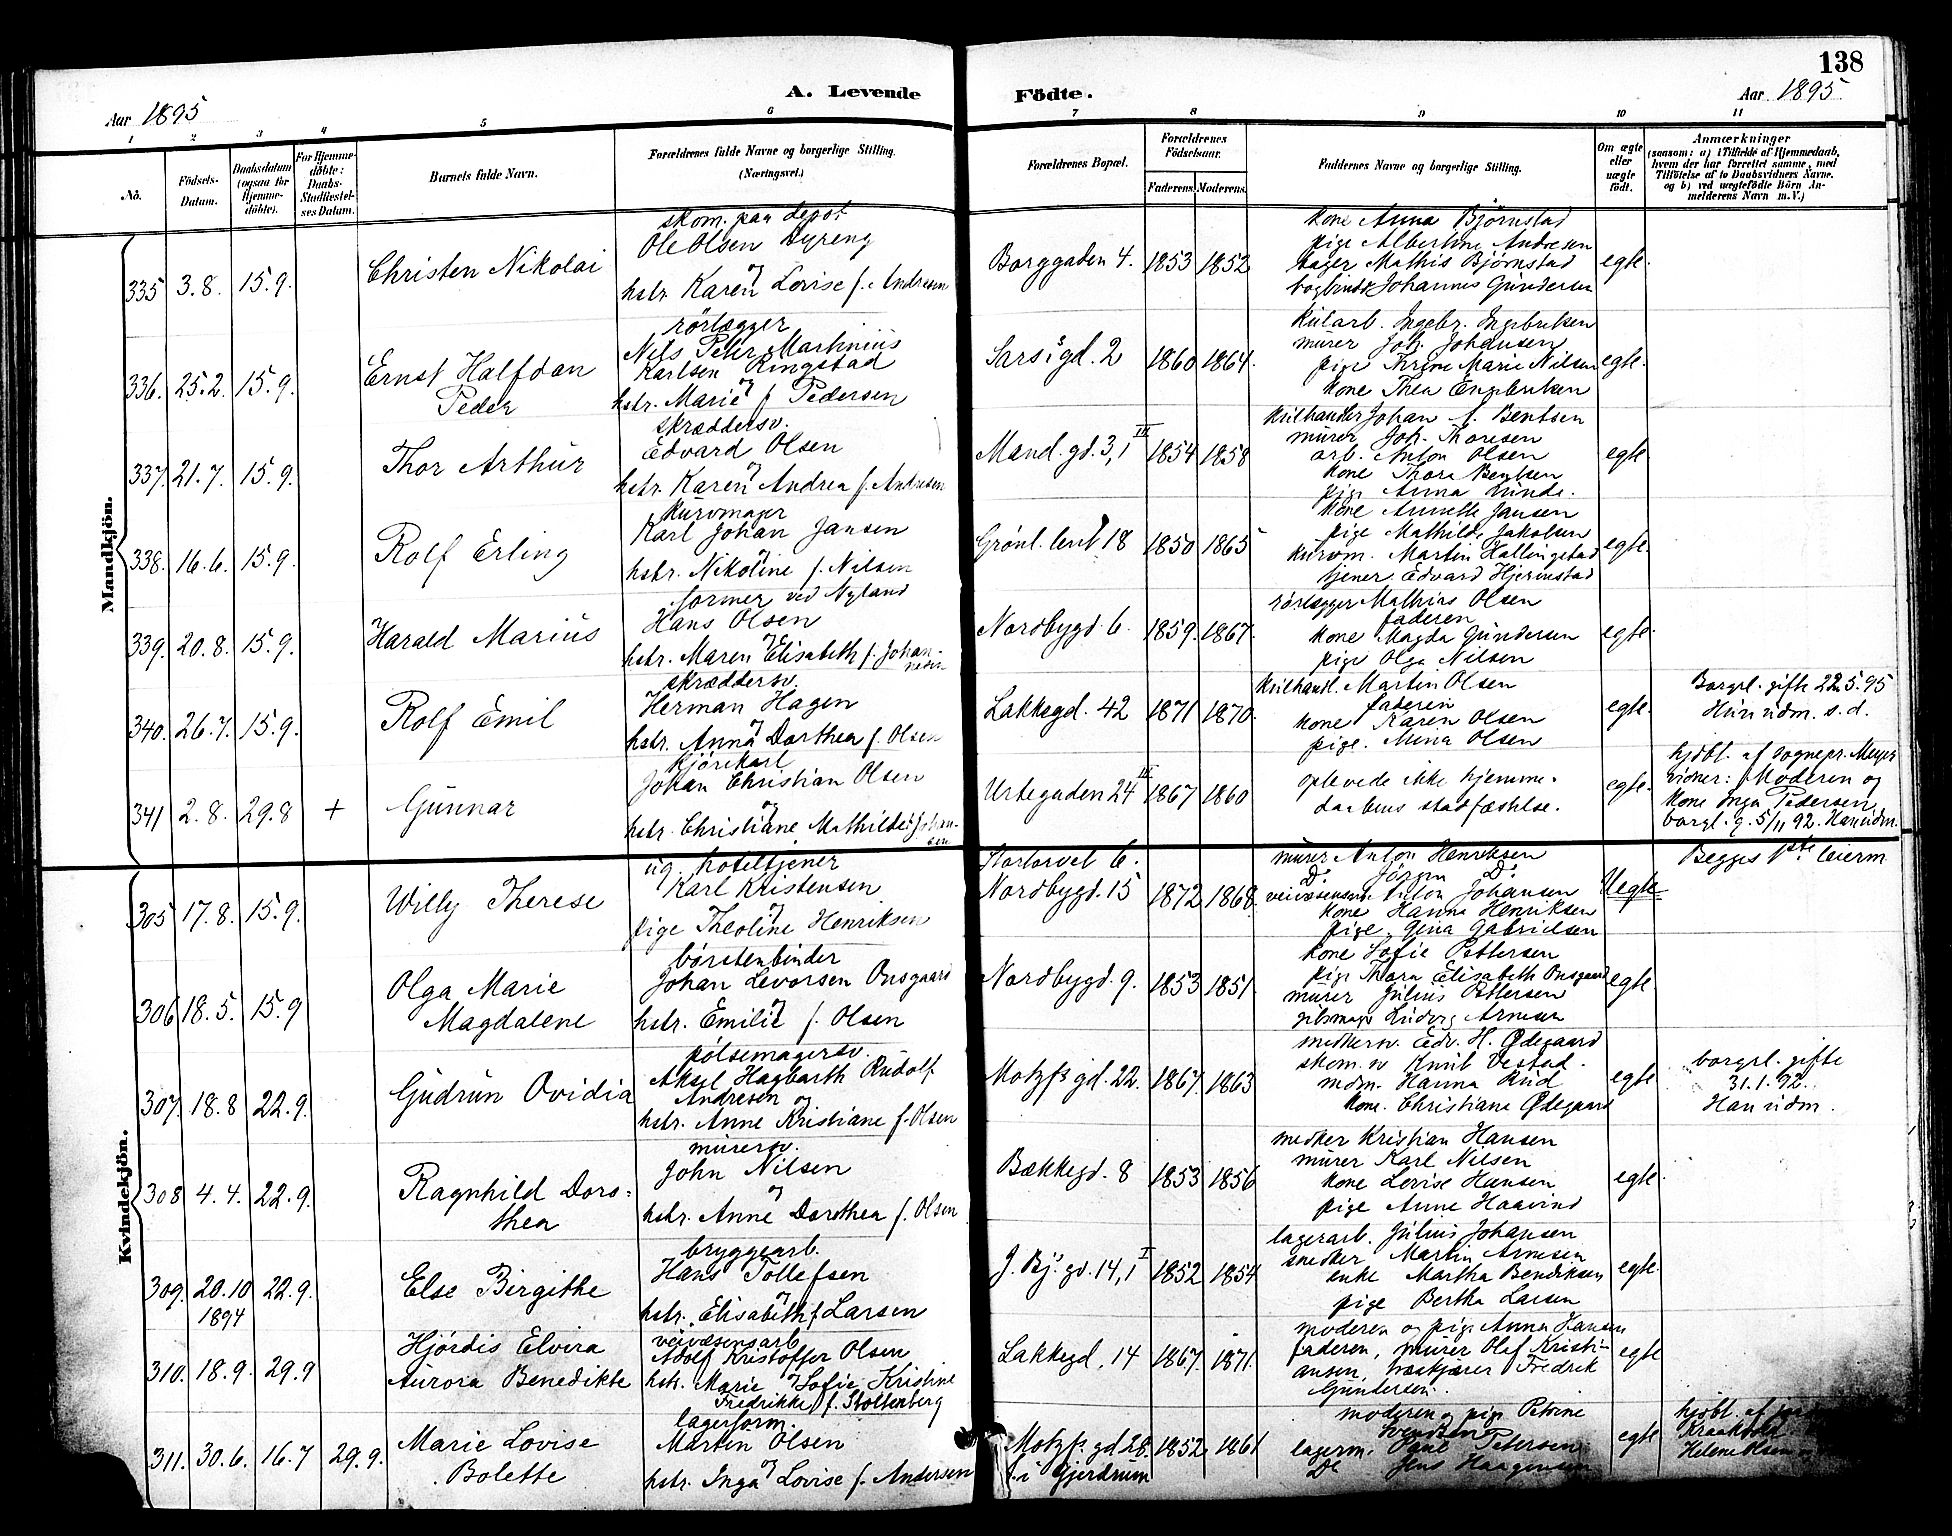 138
A. Levende Födte.
Aar 1895
Aar 1895
1 2 3 4 5 6 7 8 9 10 11
No.
Födsels-Datum.
Daabsdatum (ogsaa for Hjemme-döbte).
For Hjemme-döbte: Daabs-Stadfæstel-ses Datum.
Barnets fulde Navn.
Forældrenes fulde Navne og borgerlige Stilling. (Næringsvei.)
Forældrenes Bopæl.
Forældrenes Födselsaar.
Faderens. Moderens.
Faddernes Navne og borgerlige Stilling.
Om ægte eller uægte født.
Anmærkninger
(saasom: a) i Tilfælde af Hjemmedaab, hvem der har forrettet samme, med Tilföielse af to Daabsvidners Navne. og b) ved uægtefödte Börn An-melderens Navn m.V.)
Mandkjön.
335 3.8. 15.9. Christen Nikolai
skom. paa depot
Ole Olsen Dyreng
og
hstr. Karen Lovise f. Andresen
Borggaden 4. 1853 1852
kone Anna Bjørnstad
pige Albertine Andresen
bager Mathis Bjørnstad
bogbinder Johannes Gundersen
egte.
336. 25.2. 15.9. Ernst Halfdan
Peder
rörlægger
Nils Peter Martinius
Karlsen Ringstad
og
hstr. Marie f. Pedersen
Sarsisgd. 2 1860 1864
kularb. Ingebr. Ingebriksen
murer Joh. Johansen
pige Thrine Marie Nilsen
kone Thea Engebriksen
egte.
337. 21.7. 15.9. Thor Arthur
skræddersv.
Edvard Olsen
og
hstr. Karen Andrea f. Andresen
Mand.gd. 3,1 III 1854 1858
kulhandler Johan A. Bentsen
murer Joh. Thoresen
arb. Anton Olsen
kone Thora Bentsen
pige Anna Linde.
egte.
338. 16.6. 15.9. Rolf Erling
kurvmager
Karl Johan Jansen
og
hstr. Nikoline f. Nilsen
Grønl. leret 18 1850 1865
kone Annette Jansen
pige Mathilde Jakobsen
kurvm. Martin Hallingstad
tjener Edvard Hjermstad
egte.
339. 20.8. 15.9. Harald Marius
former ved Nyland
Hans Olsen
og
hstr. Maren Elisabeth f. Johan-
nesen
Nordbygd. 6. 1859. 1867.
rörlægger Mathias Olsen
faderen
kone Magda Gundersen
pige Olga Nilsen
egte.
340. 26.7. 15.9. Rolf Emil
skræddersv.
Herman Hagen
og
hstr. Anna Dorthea f. Olsen
Lakkegd. 42 1871 1870.
kulhandl. Martin Olsen
faderen
kone Karen Olsen
pige. Mina Olsen
egte.
Borgrl. gifte 22.5.95
Hun udm. s.d.
341 2.8. 29.8 + Gunnar
kjörekarl
Johan Christian Olsen
og
hstr. Christiane Mathilde f. Johan-
sen
Urtegaden 24 III 1867 1860
oplevede ikke hjemme-
daabens stadfæstelse.
egte.
hjdbt. af sognepr. Meyer
vidner: Moderen og
kone Inga Pedersen
borgl. g. 5/11 92. Han udm.
Kvindekjön.
305 17.8. 15.9. Willy Therese
ug. hoteltjener
Karl Kristensen
og
pige Theoline Henriksen
Stortorvet 6.
Nordbygd. 15 1872 1868.
murer Anton Henriksen
Do Jörgen Do
veivæsensarb. Anton Johansen
kone Hanna Henriksen
pige. Gina Gabrielsen
Uegte
Begges 1ste leierm
306 18.5. 15.9 Olga Marie
Magdalene
börstenbinder
Johan Levorsen Onsgaard
og
hstr. Emilie f. Olsen
Nordbygd. 9. 1853 1851.
kone Sofie Pettersen
pige Thora Elisabeth Onsgaard
murer Julius Pettersen
gibsmager Ludvig Arnesen
egte.
307. 18.8 22.9. Gudrun Ovidia
pölsemagersv.
Aksel Hagbarth Rudolf
Andresen
og
hstr. Anne Kristiane f. Olsen
Motzfs gd. 22. 1867. 1863
snedkersv. Edv. H. Ødegaard
skom. sv Knut Vestad.
mdm. Hanna Rud
kone. Christiane Ødegaard
egte
borgrl. gifte
31.1.92.
Han udm.
308 4.4. 22.9. Ragnhild Doro-
thea
murersv.
John Nilsen
og
hstr. Anne Dorothea f. Olsen
Bækkegd. 8 1853 1856
snedker Kristian Hansen
murer Karl Nilsen
kone Lovise Hansen
pige Anne Haavind
egte.
309. 20.10 1894 22.9. Else Birgithe
bryggearb.
Hans Tollefsen
og
hstr. Elisabeth f. Larsen
J. Bj. gd. 14,1 I 1852 1854
lagerarb. Julius Johansen
snedker Martin Arnesen
enke Martha Bendiksen
pige Bertha Larsen
egte.
310. 18.9. 29.9 Hjördis Elvira
Aurora Benedikte
veivæsensarb
Adolf Kristoffer Olsen
og
hstr. Marie Sofie Kristine
Fredrikke f. Stoltenberg
Lakkegd. 14 1867. 1871.
moderen og pige Anna Hansen
faderen, murer Olaf Kristi-
ansen, Fredrik
Gundersen.
egte
311. 30.6. 16.7 29.9. Marie Lovise
Bolette
lagerform.
Martin Olsen
og
hstr. Inga Lovise f. Andersen
Motzfs gd 28.
f. i Gjerdrum
1852. 1861
moderen og pige Petrine
Svendsen
lagerm. Paul Petersen
Do Jens Haagensen
egte
hjdbt. af
Helene Olsen